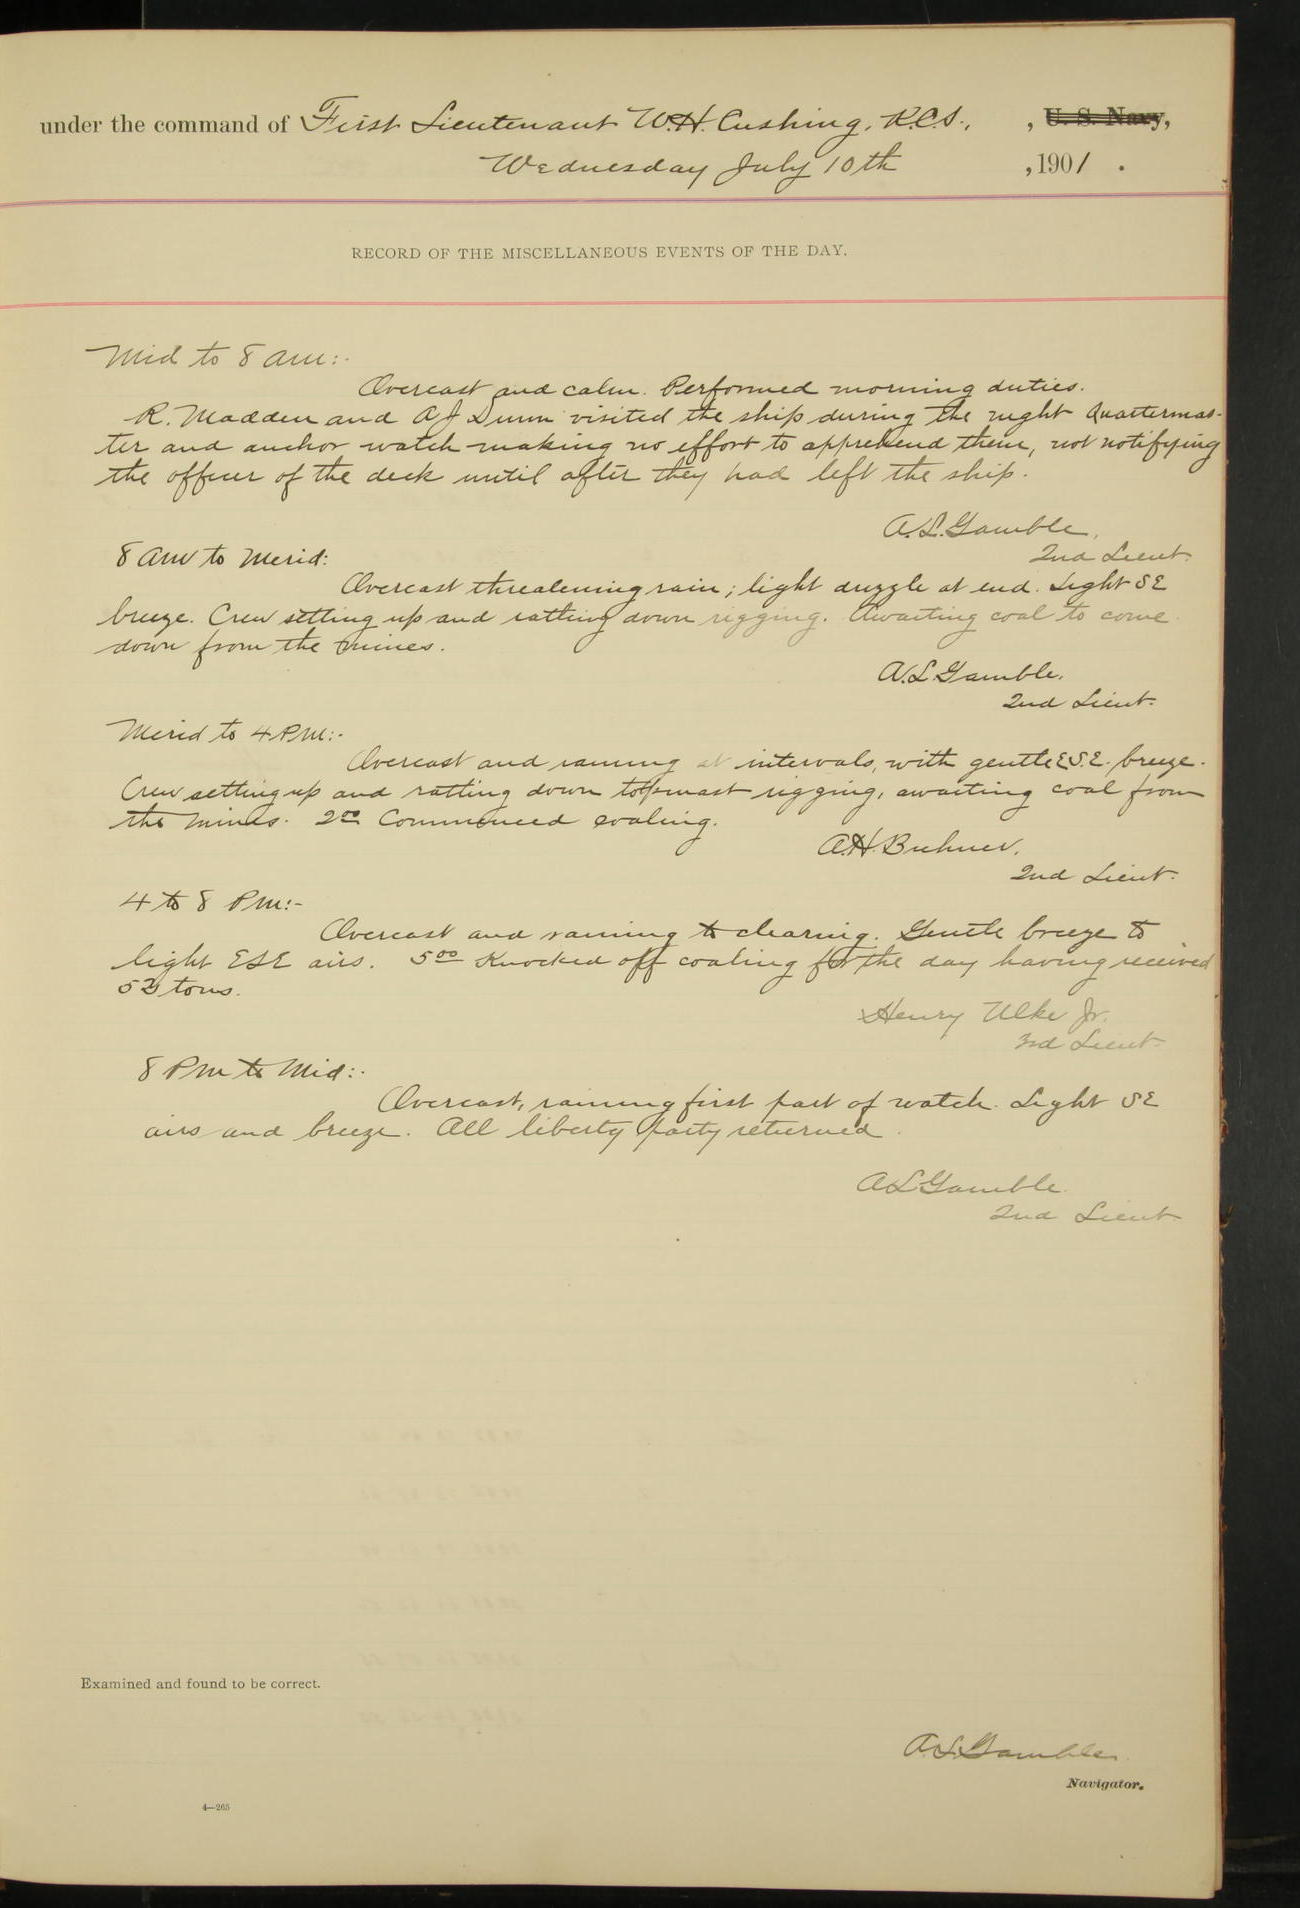 under the command of First Lieutenant W.H. Cushing, R.C.S., , U. S. Navy,
Wednesday July 10th , 1901 .
RECORD OF THE MISCELLANEOUS EVENTS OF THE DAY.
Mid to 8 am:-
Overcast and calm. Performed morning duties.
R. Madden and A J Dunn visited the ship during the night Quartermas-
ter and anchor watch making no effort to apprehend them, not notifying
the officer of the deck until after they had left the ship.
A.L. Gamble,
2nd Lieut.
8 am to Merid:
Overcast threatening rain; light drizzle at end. Light SE
breeze. Crew setting up and ratting down rigging. Awaiting coal to come
down from the mines.
A.L. Gamble.
2nd Lieut.
Merid to 4 PM:-
Overcast and raining at intervals, with gentle ESE. breeze.
Crew setting up and ratting down topmast rigging, awaiting coal from
the mines. 200 Commenced coaling.
A.H. Buhner,
2nd Lieut.
4 to 8 Pm:-
Overcast and raining to clearing. Gentle breeze to
light ESE airs. 5oo Knocked off coaling for the day having received
tons.
Henry Ulke Jr.
3rd Lieut.
8 Pm to Mid:-
Overcast, raining first part of watch. Light SE
airs and breeze. All liberty party returned.
A L Gamble.
2nd Lieut
Examined and found to be correct.
A.L. Gamble.
Navigator.
4—265